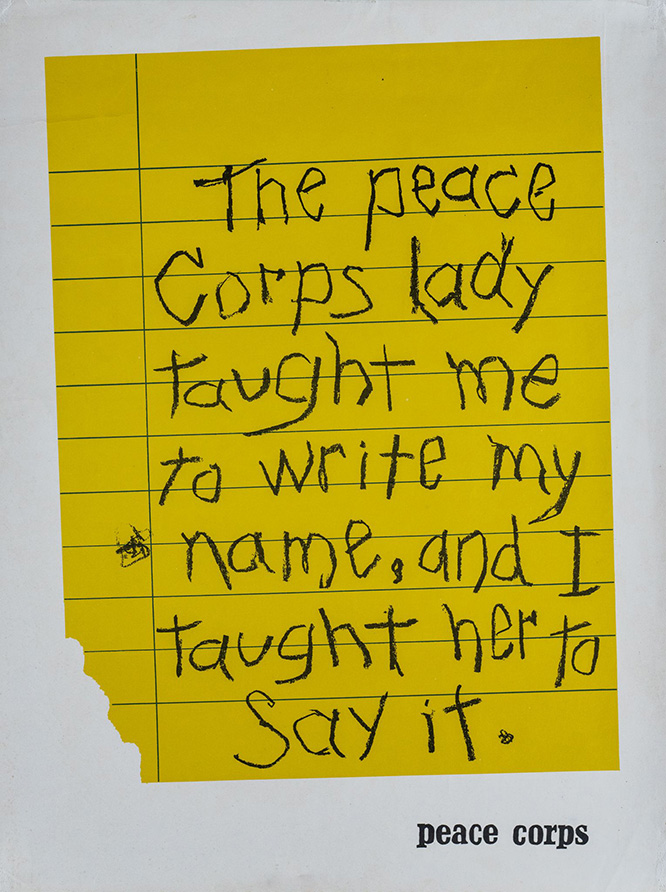 The peace
Corps lady
taught me
to write my
name, and I
taught her to
say it.
peace corps